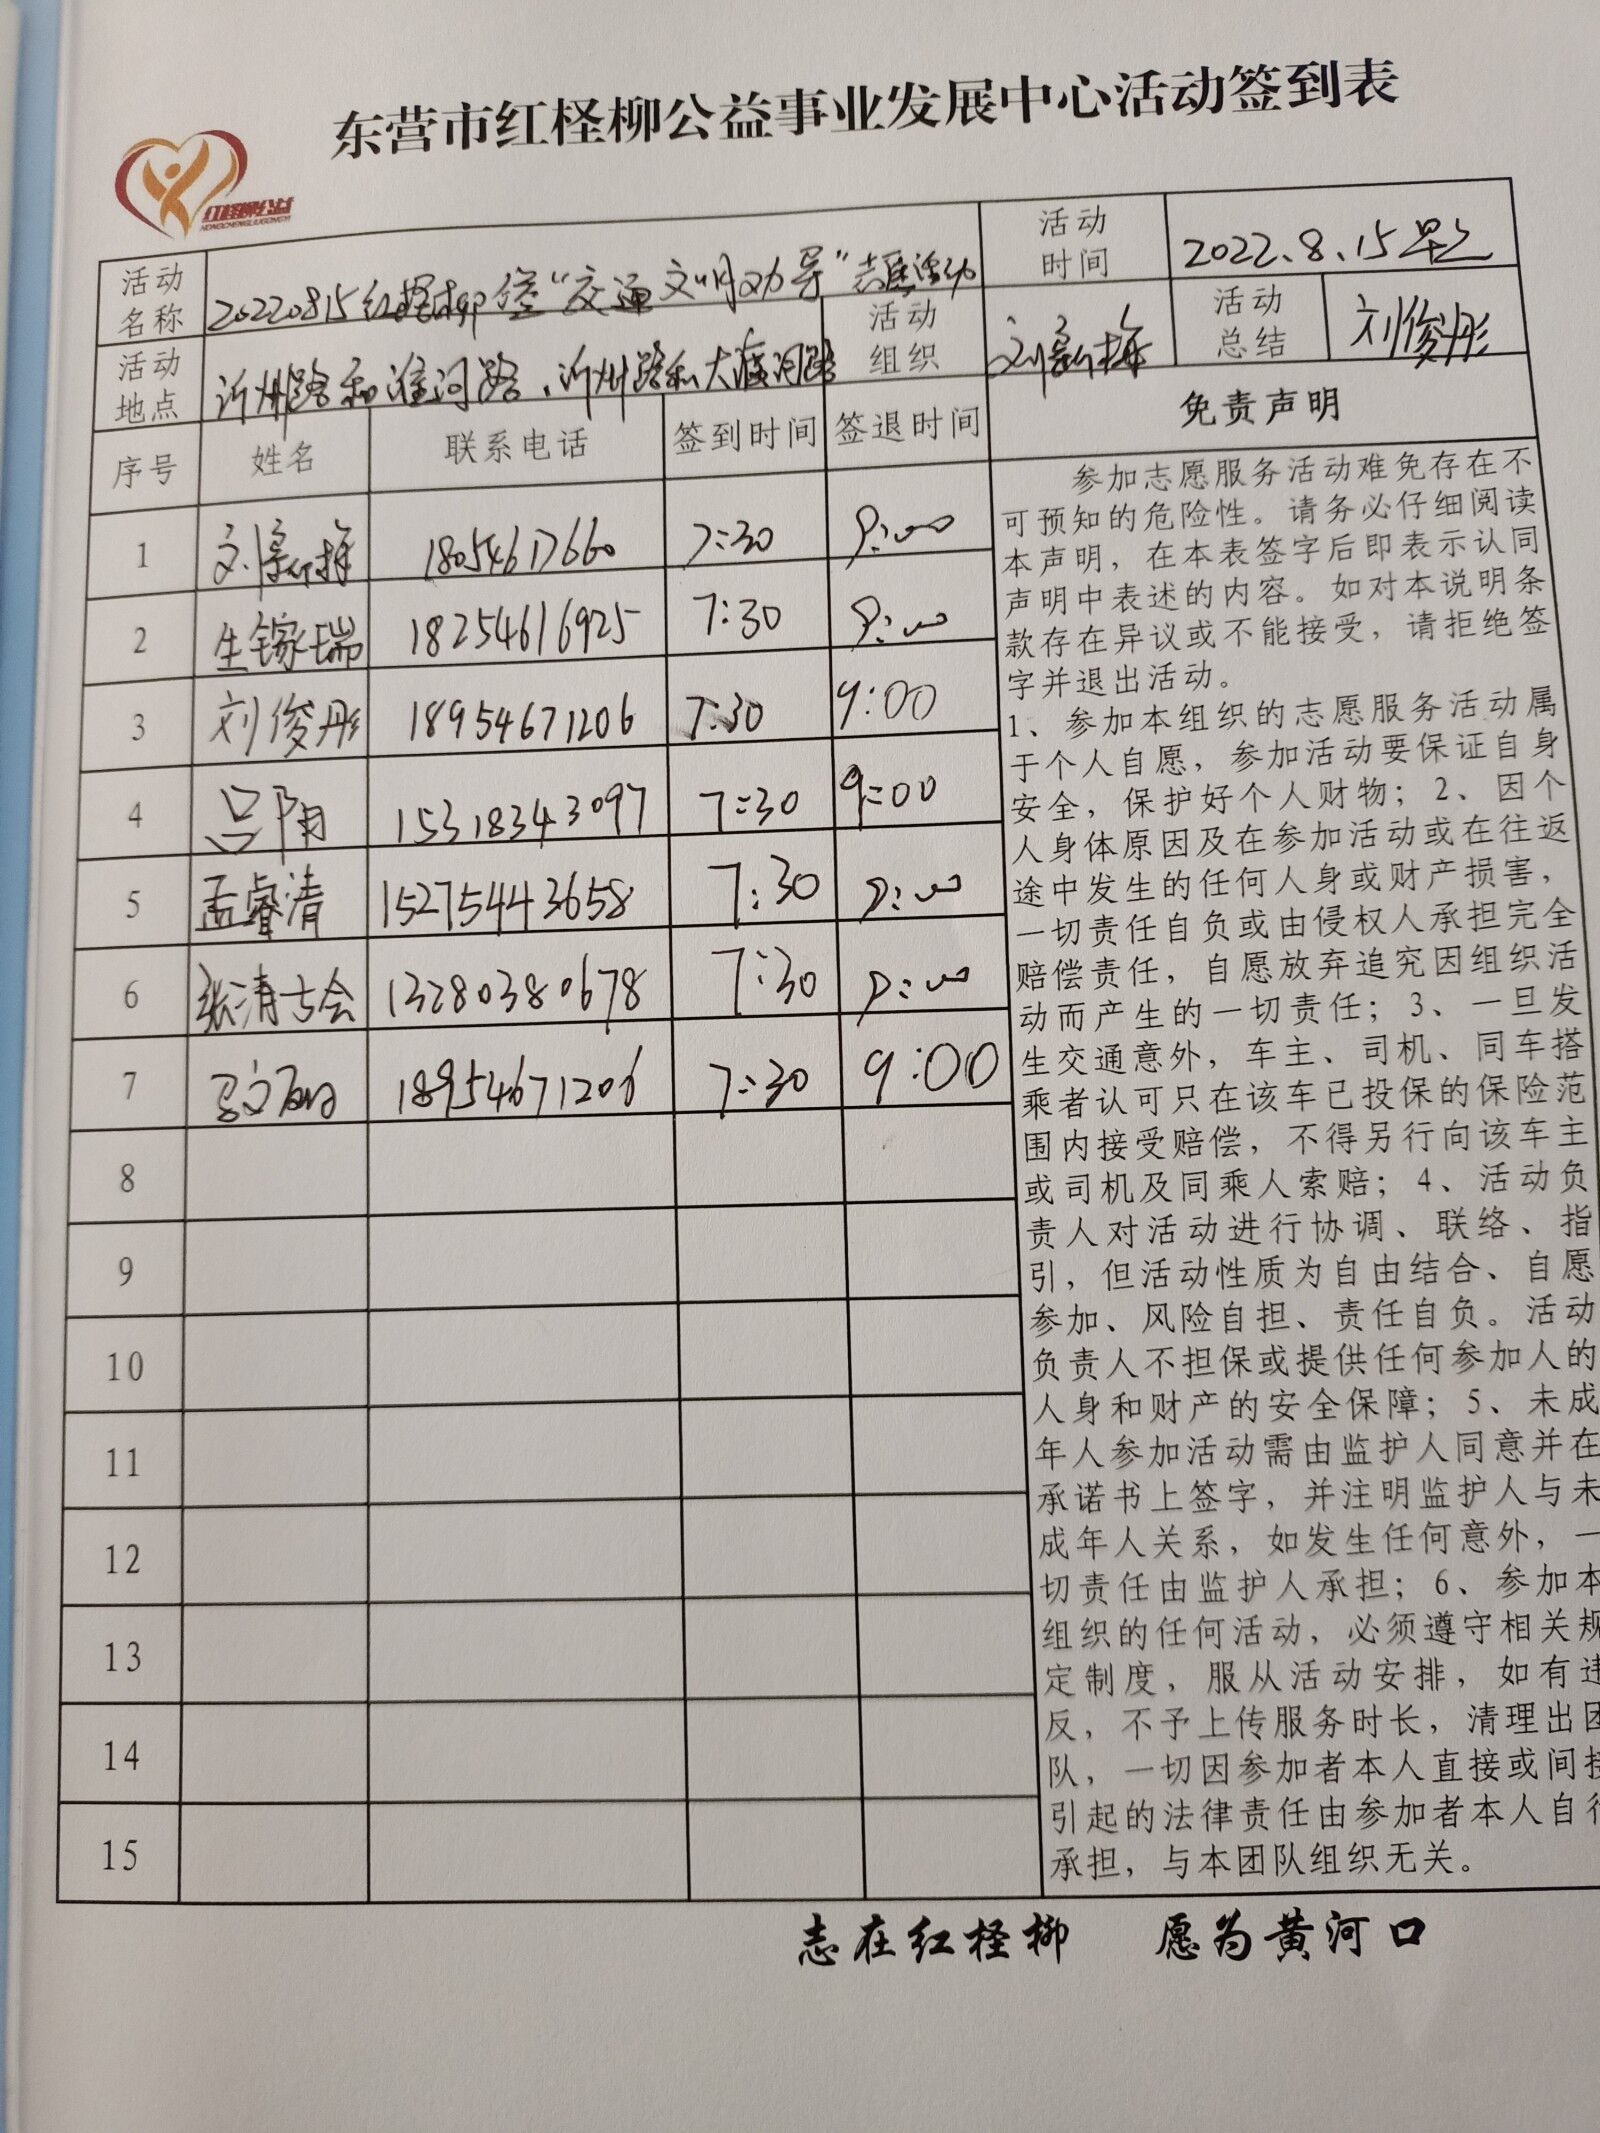 东营市红柽柳公益事业发展中心活动签到表
红柽柳公益
HONGCHENGLIUGONGYI
活动名称 20220815红柽柳 “交通文明劝导”志愿活动 活动时间 2022.8.15早上
活动地点 沂州路和淮河路、沂州路和大渡河路 活动组织 刘新梅 活动总结 刘俊彤
序号 姓名 联系电话 签到时间 签退时间 免责声明
1 刘新梅 18054617660 7:30 9:00
2 生镓瑞 18254616925 7:30 9:00
3 刘俊彤 18954671206 7:30 9:00
4 吕阳 15318343097 7:30 9:00
5 孟睿清 15275443658 7:30 9:00
6 张清 13280380678 7:30 9:00
7 18954671206 7:30 9:00
8
9
10
11
12
13
14
15
参加志愿服务活动难免存在不
可预知的危险性。请务必仔细阅读
本声明，在本表签字后即表示认同
声明中表述的内容。如对本说明条
款存在异议或不能接受，请拒绝签
字并退出活动。
1、参加本组织的志愿服务活动属
于个人自愿，参加活动要保证自身
安全，保护好个人财物；2、因个
人身体原因及在参加活动或在往返
途中发生的任何人身或财产损害，
一切责任自负或由侵权人承担完全
赔偿责任，自愿放弃追究因组织活
动而产生的一切责任；3、一旦发
生交通意外，车主、司机、同车搭
乘者认可只在该车已投保的保险范
围内接受赔偿，不得另行向该车主
或司机及同乘人索赔；4、活动负
责人对活动进行协调、联络、指
引，但活动性质为自由结合、自愿
参加、风险自担、责任自负。活动
负责人不担保或提供任何参加人的
人身和财产的安全保障；5、未成
年人参加活动需由监护人同意并在
承诺书上签字，并注明监护人与未
成年人关系，如发生任何意外，一
切责任由监护人承担；6、参加本
组织的任何活动，必须遵守相关规
定制度，服从活动安排，如有违
反，不予上传服务时长，清理出团
队，一切因参加者本人直接或间接
引起的法律责任由参加者本人自行
承担，与本团队组织无关。
志在红柽柳 愿为黄河口